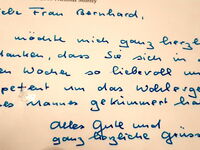 iebe Frau Bernhard,
möchte mich ganz herzl
danken, dass Sie sich in
en Wochen so liebevoll un
petent um das Wohlerge
es Mannes gekümmert ha
Alles Gute und
ganz herzliche Grüss